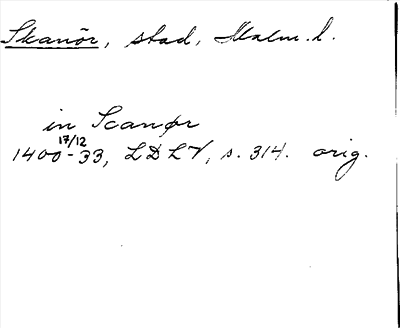 Skanör, stad, Malm. l.
in Scanør
17/12
1400-33, LDLV, s. 314. orig.